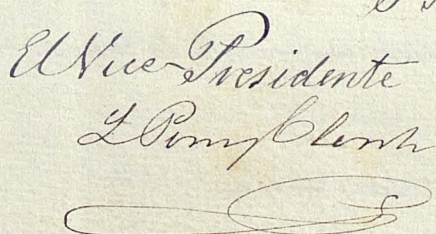 El Vice-Presidente
L Pomy Clark